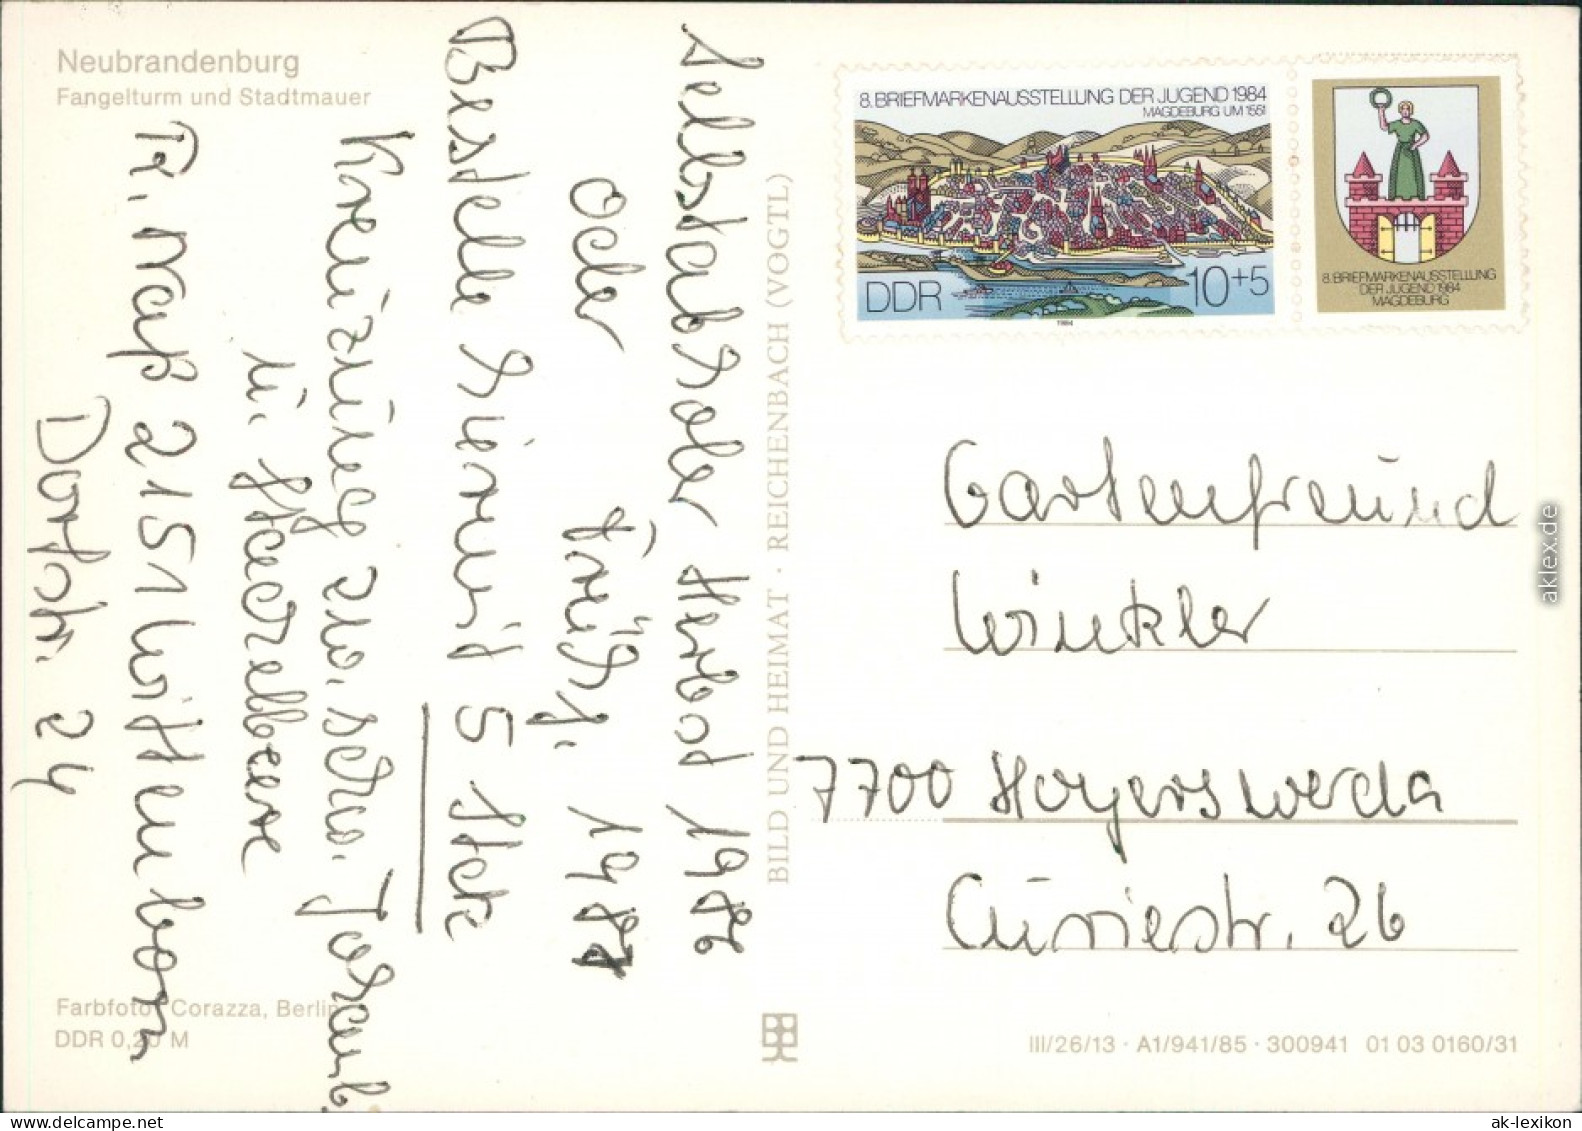 Neubrandenburg
Fangelturm und Stadtmauer
8. BRIEFMARKENAUSSTELLUNG DER JUGEND 1984
MAGDEBURG UM 1551
DDR
10+5
1984
8. BRIEFMARKENAUSSTELLUNG
DER JUGEND 1984
MAGDEBURG
Selbstabholer Herbst 1986
oder Frühj. 1987
Bestelle hiermit 5 Stck
Kreuzung zw. schw. Johannb.
u. Stachelbeere
Tr. Naß 2151 Wittenborn
Dorfstr. 24
BILD UND HEIMAT · REICHENBACH (VOGTL)
Gartenfreund
Winkler
7700 Hoyerswerda
Curiestr. 26
Farbfoto: Corazza, Berlin
DDR 0,20 M
III/26/13 · A1/941/85 · 300941 01 03 0160/31
aklex.de
www.delcampe.net
ak-lexikon